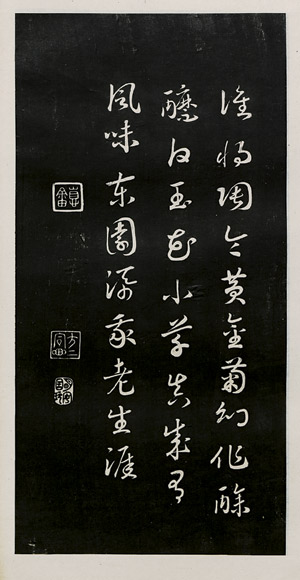 誰將陶令黃金菊幻作酴
醾白玉花小草真成有
風味東園添我老生涯